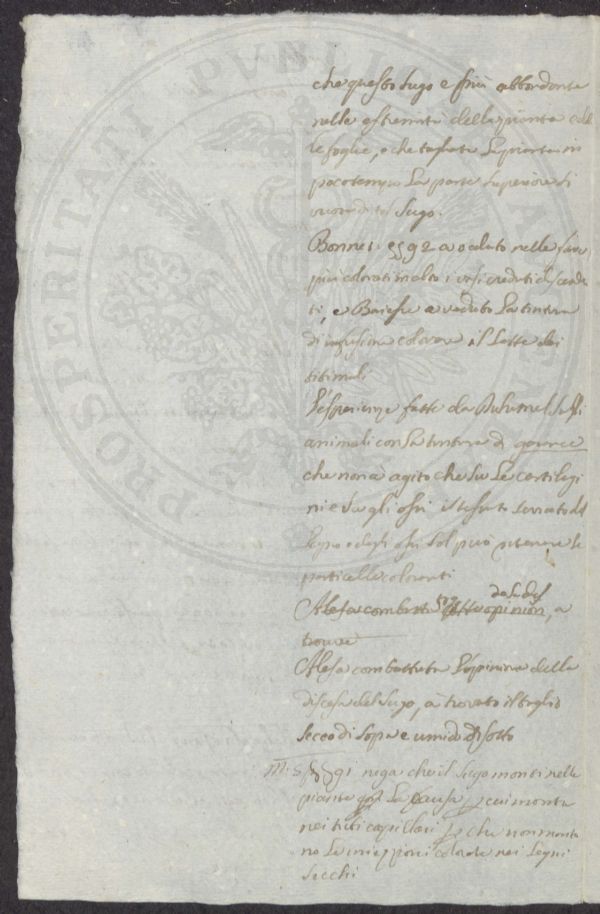 PROSPERITATI PVBLICAE
che questo sugo e più abbondante
nelle estremità della pianta e del
le foglie, e che tagliata la pianta in
poco tempo la parte superiore si
di sugo.
Bonnet §92 a veduto nelle fave
più colorati molto i vasi creduti discenden
ti, e a veduto la tintura
di infusione colorare il latte dei
titimali
L'esperienze fatte da Duhamel sugli
animali con la tintura di garance
che non à agito che su le cartilagi
ni e su gli ossi il tessuto serrato del
legno e degli ossi sol può ritenere le
particelle coloranti
Alefa combatte opinion, a
trovare
Alefa combattuta l'opinione della
discesa del sugo, à trovato il taglio
secco di sopra e umido di sotto
§91 nega che il sugo monti nelle
piante per la causa per cui monta
nei tubi capillari per che non monta
no le iniezzioni colorate nei legni
secchi